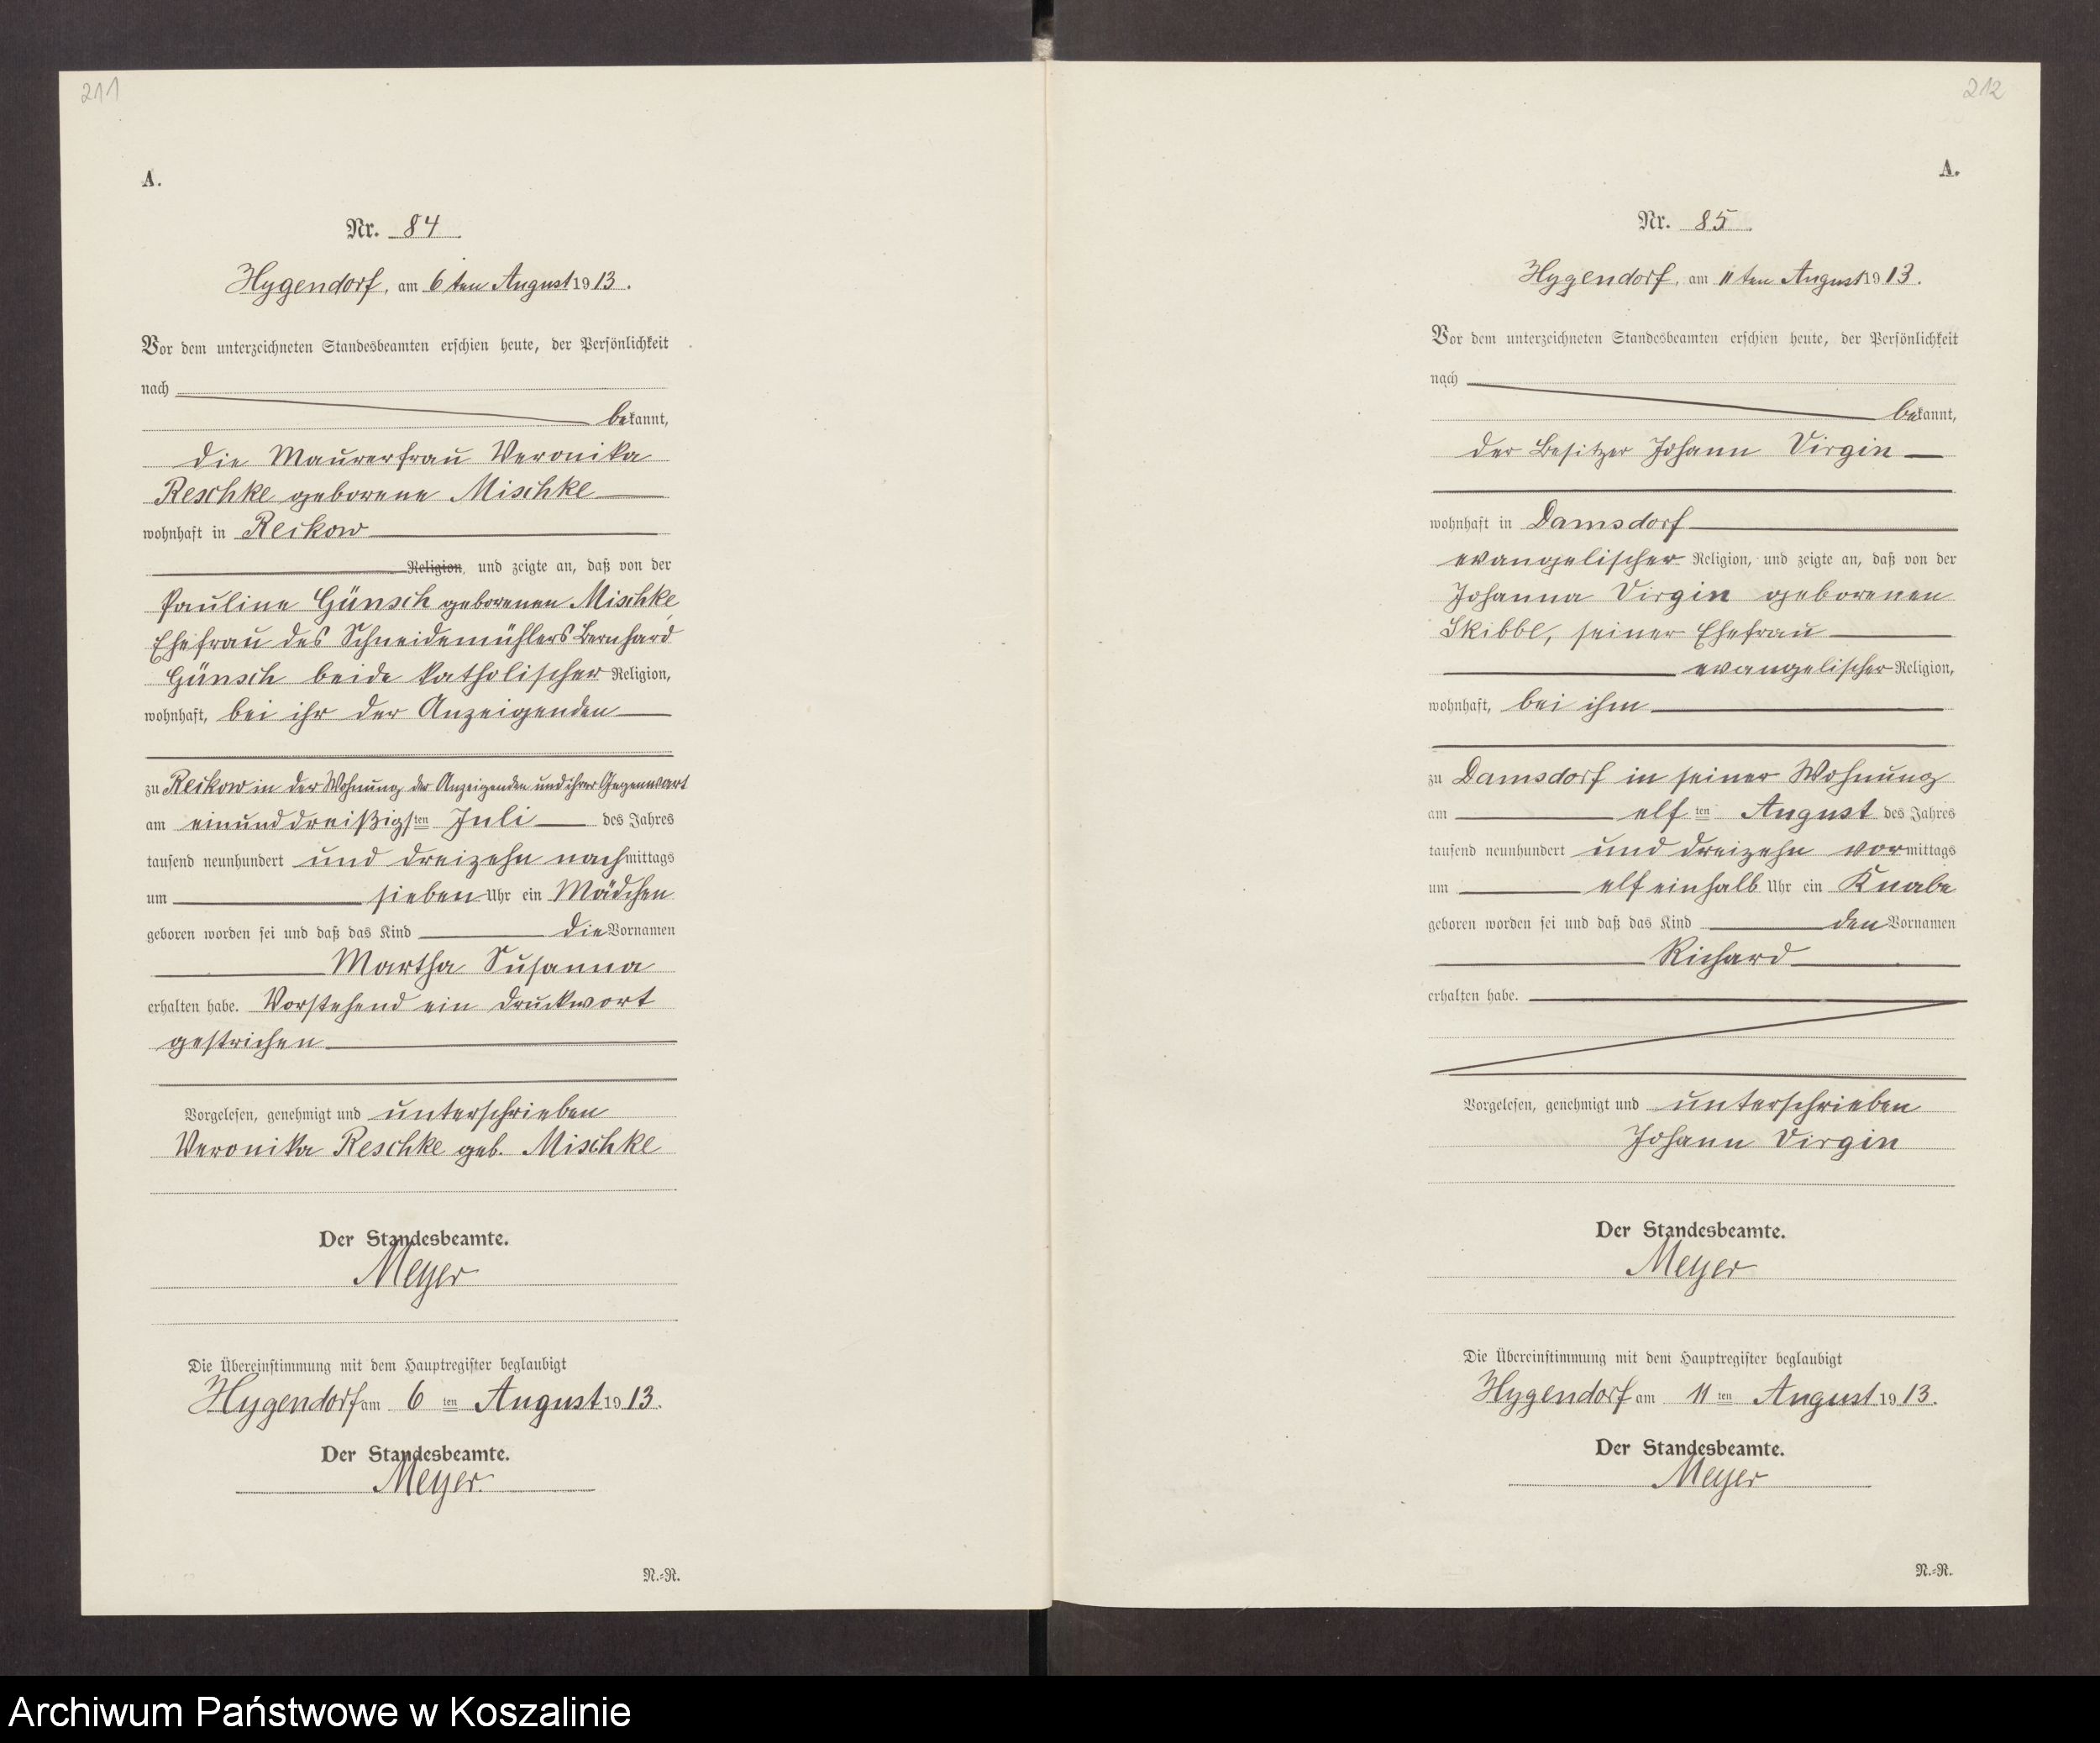 211
A.
Nr. 84.
Hygendorf, am 6 ten August 1913.
Vor dem unterzeichneten Standesbeamten erschien heute, der Persönlichkeit
nach
bekannt,
die Maurerfrau Veronika
Reschke geborene Mischke
wohnhaft in Reikow
Religion, und zeigte an, daß von der
Pauline Günsch geborenen Mischke,
Ehefrau des Schneidemühlers Bernhard
Günsch beide katholischer Religion,
wohnhaft, bei ihr der Anzeigenden
zu Reikow in der Wohnung der Anzeigenden und ihrer Gegenwart
am einunddreißigsten Juli des Jahres
tausend neunhundert und dreizehn nachmittags
um sieben Uhr ein Mädchen
geboren worden sei und daß das Kind die Vornamen
Martha Susanna
erhalten habe. Vorstehend ein Druckwort
gestrichen
Vorgelesen, genehmigt und unterschrieben
Veronika Reschke geb. Mischke
Der Standesbeamte.
Meyer
Die Übereinstimmung mit dem Hauptregister beglaubigt
Hygendorf am 6 ten August 1913.
Der Standesbeamte.
Meyer.
N.=R.
212
A.
Nr. 85.
Hygendorf, am 11 ten August 1913.
Vor dem unterzeichneten Standesbeamten erschien heute, der Persönlichkeit
nach
bekannt,
der Besitzer Johann Virgin
wohnhaft in Damsdorf
evangelischer Religion, und zeigte an, daß von der
Johanna Virgin geborenen
Skibbe, seiner Ehefrau
evangelischer Religion,
wohnhaft, bei ihm
zu Damsdorf in seiner Wohnung
am elf ten August des Jahres
tausend neunhundert und dreizehn vormittags
um elf einhalb Uhr ein Knabe
geboren worden sei und daß das Kind den Vornamen
Richard
erhalten habe.
Vorgelesen, genehmigt und unterschrieben
Johann Virgin
Der Standesbeamte.
Meyer
Die Übereinstimmung mit dem Hauptregister beglaubigt
Hygendorf am 11 ten August 1913.
Der Standesbeamte.
Meyer
N.=R.
Archiwum Państwowe w Koszalinie